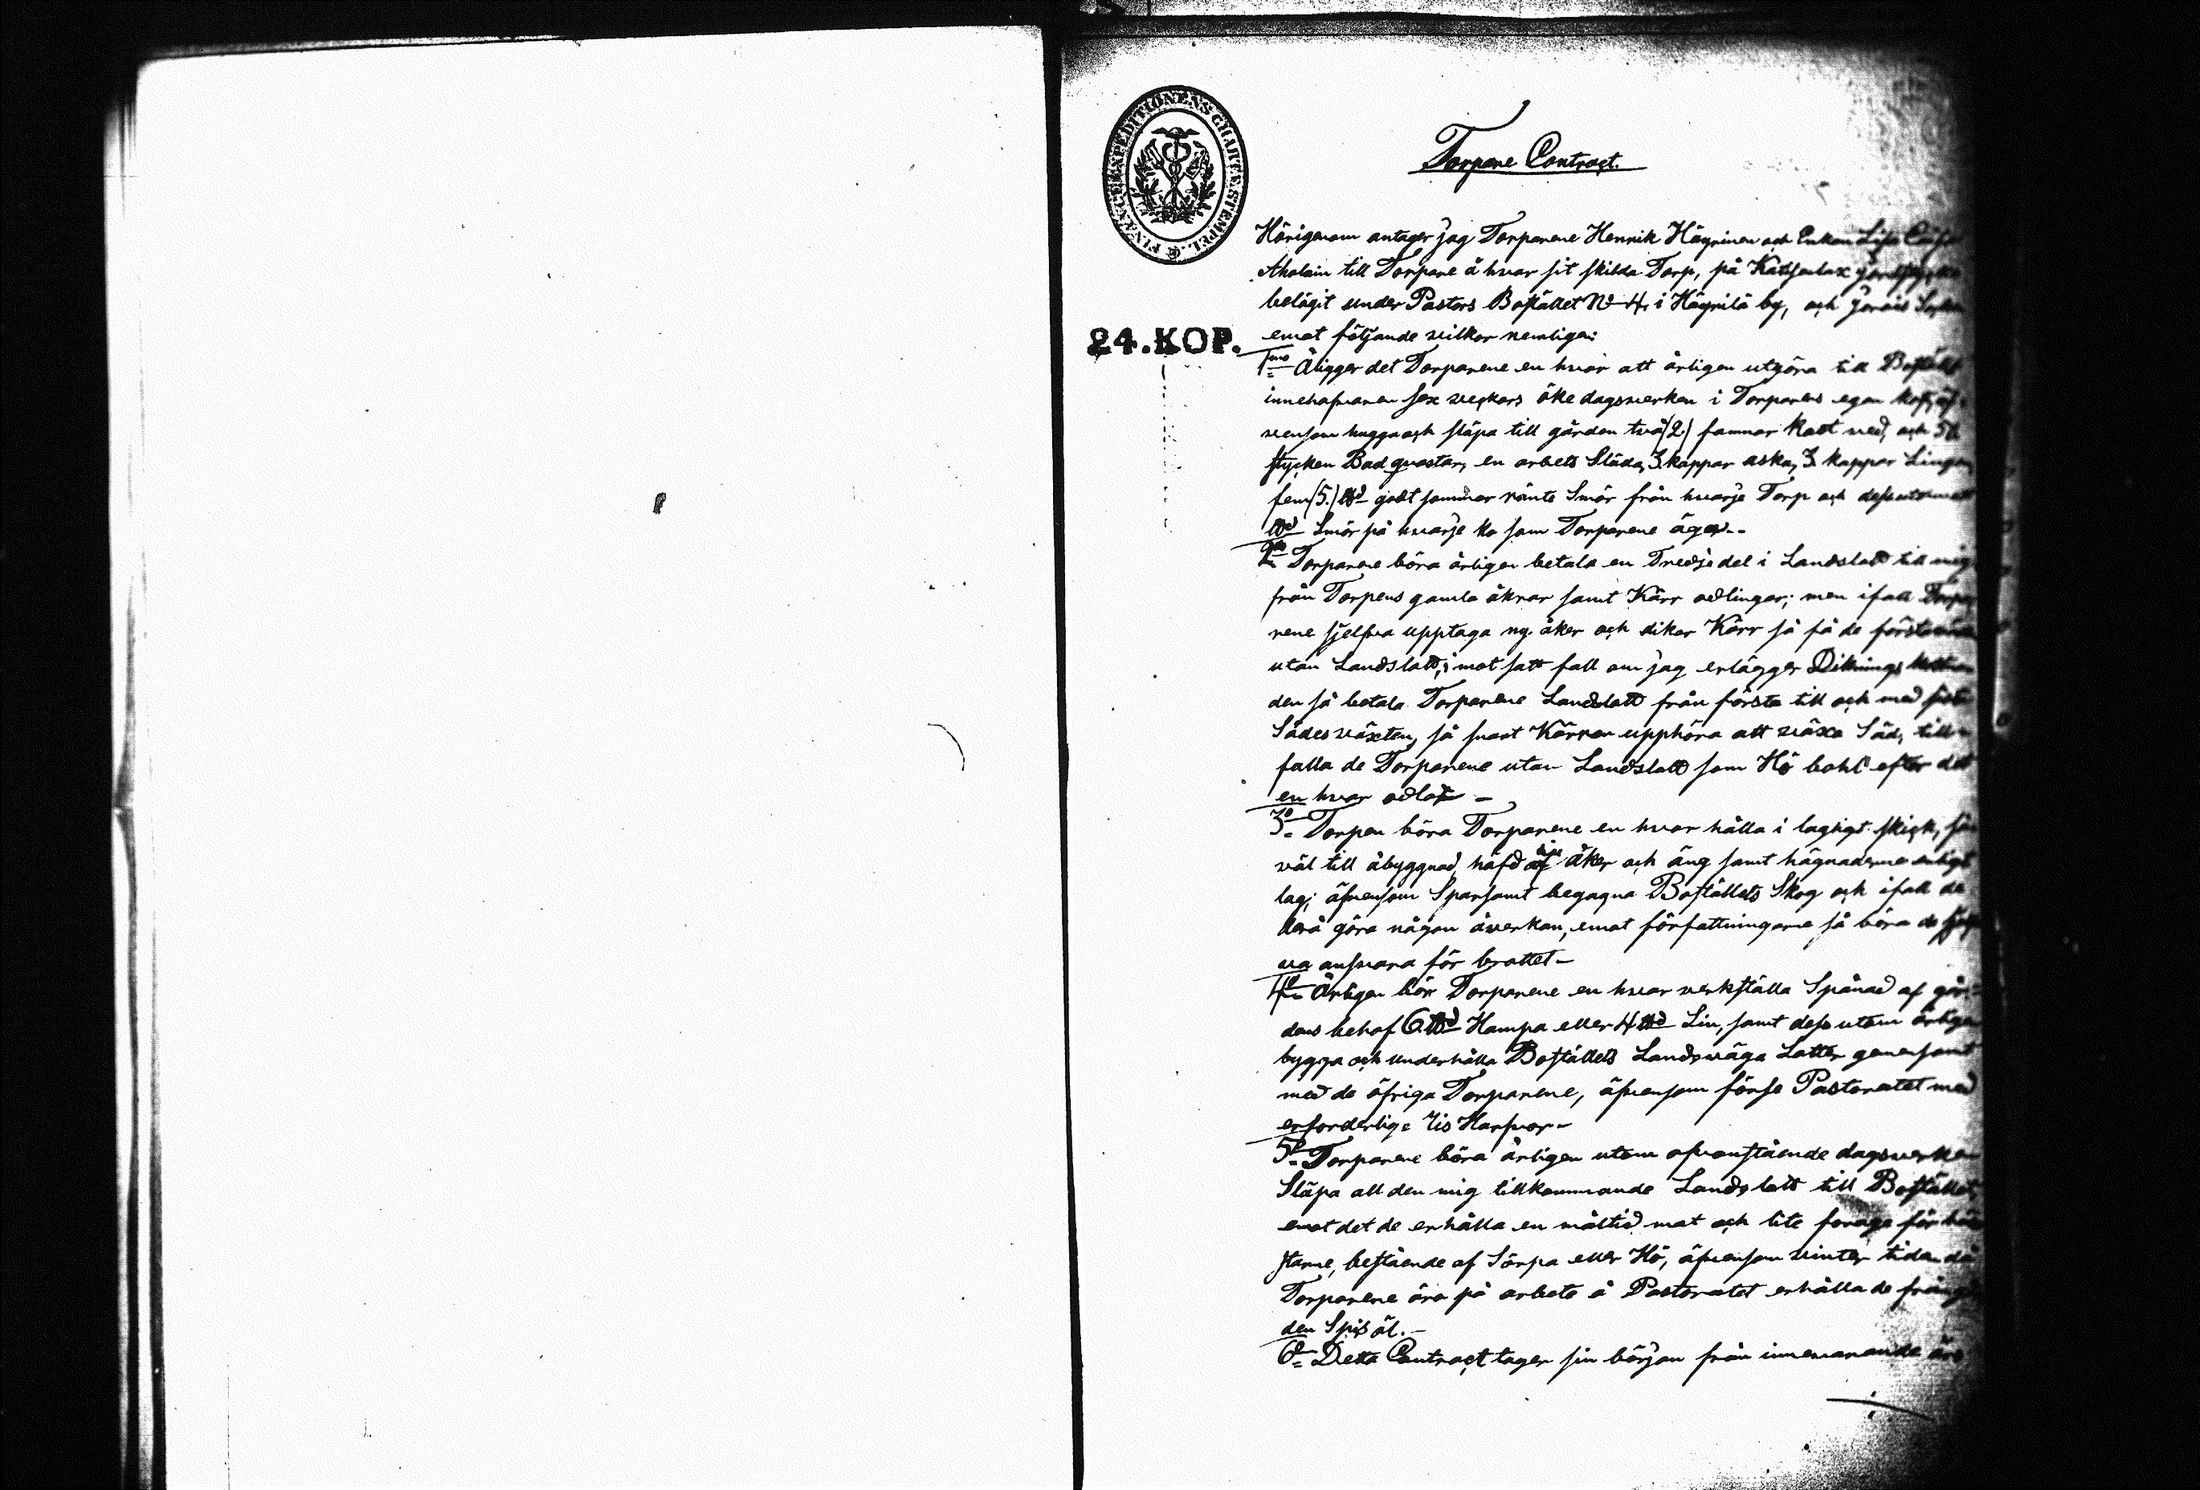 FINANCE EXPEDITIONENS CHARTÆ STEMPEL.
24.KOP.
Torpare Contract.
Härigenom antager jag Torparene Henrik Häyrinen och Enkan Lisa Caisa
Aholain till Torpare å hvar sit skilda Torp, på Katisenlax
belägit under Pastors Bostället No 4. i Häyrilä by, och Jorois Sockn
emot följande vilkor nemligen:
1mo Åligger det Torparene en hvar att årligen utgöra till Bostälets
innehafvaren sex veckors öke dagsverken i Torparens egen kost, äf-
vensom hugga och släpa till gården två (2) famnar kast ved, och 50
stycken Bad qvastar, en arbets Släda, 3 kappar aska, 3 kappar Lingon,
fem (5.) ℔d godt sommar ränte Smör från hvarje Torp och dessutom ett
℔d Smör på hvarje ko som Torparene äger.-
2do Torparene böra årligen betala en Tredje del i Landslott till mig
från Torpens gamla åkrar samt Kärr odlingar; men ifall Torpa-
rene sjelfva upptaga ny åker och dikar Kärr så få de första
utan Landslott; i mot satt fall om jag erlägger Diknings kostna
den så betala Torparene Landslott från första till och med sista
Sädes växten, så snart Kärren upphöra att växa Säd, till-
falla de Torparene utan Landslott som Hö bohl efter det
en hvar odlat -
3o Torpen böra Torparene en hvar hålla i lagligt skick, så
väl till åbyggnad, häfd af åker och äng samt hägnaderne enligt
lag; äfvensom Sparsamt begagna Boställets Skog och ifall de
derå göra någon åverkan, emot författningarne så böra de sjelf
va ansvara för brottet -
4o Årligen bör Torparene en hvar verkställa Spånad af går-
dens behof 6 ℔d Hampa eller 4 ℔d Lin, samt dess utom årligen
bygga och underhålla Boställets Landsväga Lotter gemensamt
med de öfriga Torparene, äfvensom förse Pastoratet med
erforderliga Ris Harfvor -
5o Torparene böra årligen utom ofvanstående dagsverken
Släpa all den mig tillkommande Landslott till Bostället,
emot det de erhålla en måltid mat och lite forage för hä
starne, bestående af Sörpa eller Hö, äfvensom vinter tiden då
Torparene äro på arbete å Pastoratet erhålla de från går
den Spis öl. -
6o Detta Contract tager sin början från innevarande års